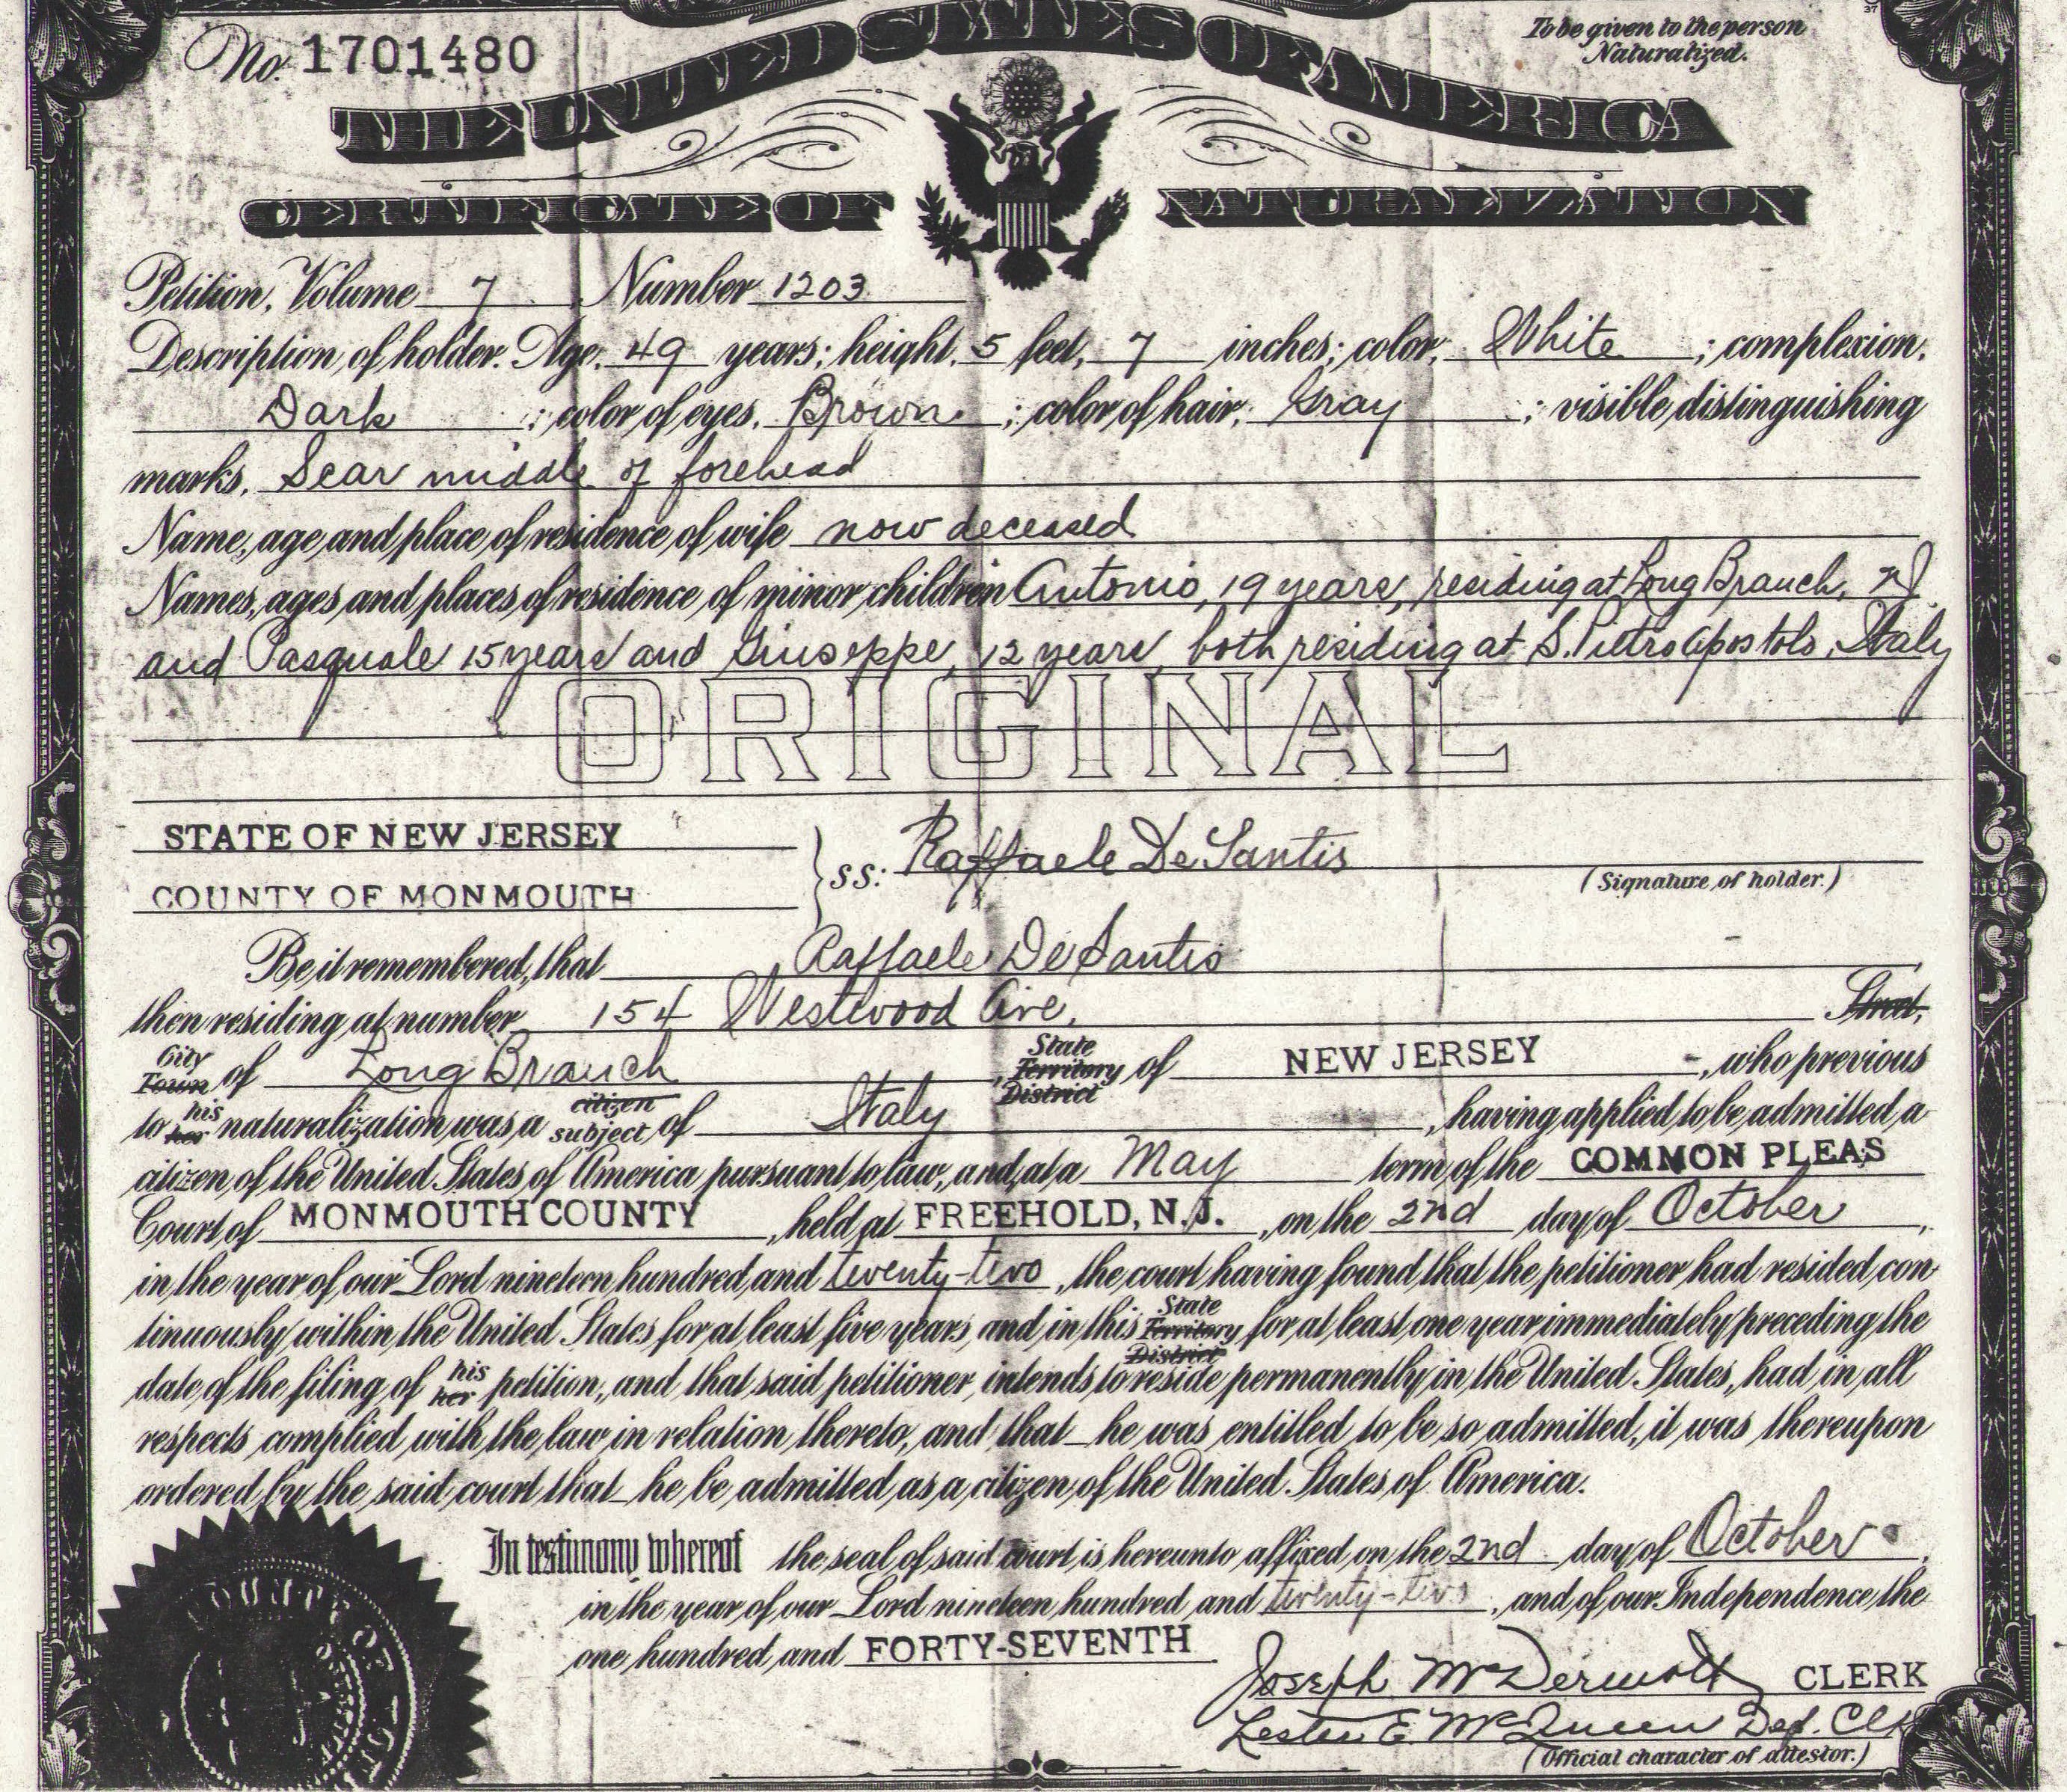 No. 1701480
To be given to the person
Naturalized.
THE UNITED STATES OF AMERICA
CERTIFICATE OF NATURALIZATION
Petition, Volume 7 Number 1203
Description of holder. Age, 49 years; height, 5 feet, 7 inches; color, White ; complexion,
Dark ; color of eyes, Brown ; color of hair, Gray ; visible distinguishing
marks, Scar middle of forehead
Name, age and place of residence of wife now deceased
Names, ages and places of residence of minor children Antonio, 19 years, residing at Long Branch, NJ
and Pasquale 15 years and Giuseppe, 12 years, both residing at S. Pietro Apostolo, Italy
ORIGINAL
STATE OF NEW JERSEY
COUNTY OF MONMOUTH
ss: Raffaele De Santis
(Signature of holder.)
Be it remembered, that Raffaele De Santis
then residing at number 154 Westwood Ave. Street,
City Town of Long Branch, State Territory District of NEW JERSEY -, who previous
to his her naturalization was a citizen subject of Italy, having applied to be admitted a
citizen of the United States of America pursuant to law, and, at a May term of the COMMON PLEAS
Court of MONMOUTH COUNTY, held at FREEHOLD, N.J., on the 2nd day of October,
in the year of our Lord nineteen hundred and twenty-two, the court having found that the petitioner had resided con-
tinuously within the United States for at least five years and in this State Territory District for at least one year immediately preceding the
date of the filing of his her petition, and that said petitioner intends to reside permanently in the United States, had in all
respects complied with the law in relation thereto, and that he was entitled to be so admitted, it was thereupon
ordered by the said court that he be admitted as a citizen of the United States of America.
In testimony whereof the seal of said court is hereunto affixed on the 2nd day of October,
in the year of our Lord nineteen hundred and twenty-two, and of our Independence the
one hundred and FORTY-SEVENTH.
Joseph McDermott CLERK
Lester E. McQueen Dep. Clk
(Official character of attestor.)